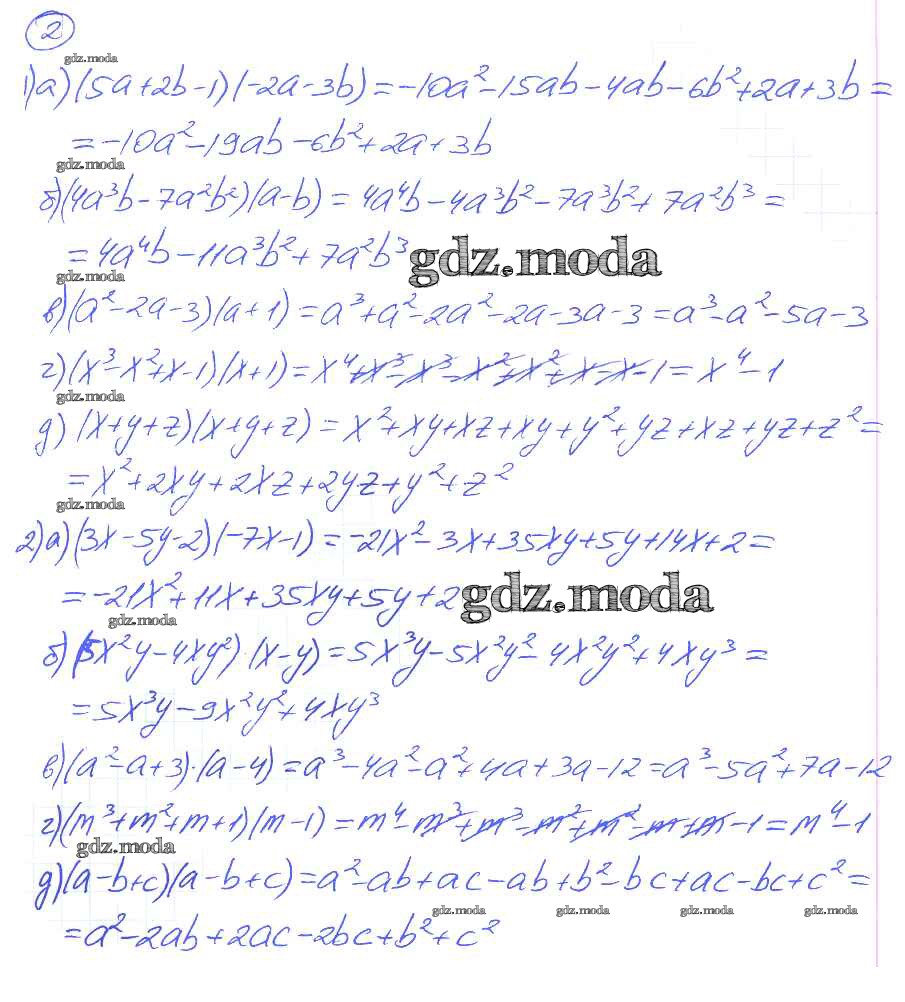 2
gdz.moda
1) а) (5a+2b-1)(-2a-3b) = -10a²-15ab-4ab-6b²+2a+3b =
= -10a²-19ab-6b²+2a+3b
gdz.moda
б) (4a³b-7a²b²)(a-b) = 4a⁴b-4a³b²-7a³b²+7a²b³ =
= 4a⁴b-11a³b²+7a²b³ gdz.moda
gdz.moda
в) (a²-2a-3)(a+1) = a³+a²-2a²-2a-3a-3 = a³-a²-5a-3
г) (x³-x²+x-1)(x+1) = x⁴+x³-x³-x²+x²+x-x-1 = x⁴-1
gdz.moda
д) (x+y+z)(x+y+z) = x²+xy+xz+xy+y²+yz+xz+yz+z² =
= x²+2xy+2xz+2yz+y²+z²
gdz.moda
2) а) (3x-5y-2)(-7x-1) = -21x²-3x+35xy+5y+14x+2 =
= -21x²+11x+35xy+5y+2 gdz.moda
gdz.moda
б) (5x²y-4xy²)·(x-y) = 5x³y-5x²y²-4x²y²+4xy³ =
= 5x³y-9x²y²+4xy³
в) (a²-a+3)·(a-4) = a³-4a²-a²+4a+3a-12 = a³-5a²+7a-12
г) (m³+m²+m+1)(m-1) = m⁴-m³+m³-m²+m²-m+m-1 = m⁴-1
gdz.moda
д) (a-b+c)(a-b+c) = a²-ab+ac-ab+b²-bc+ac-bc+c² =
gdz.moda gdz.moda gdz.moda gdz.moda
= a²-2ab+2ac-2bc+b²+c²